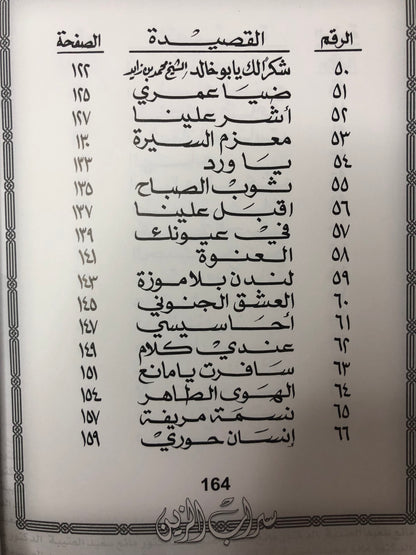 الرقم القصيدة الصفحة
٥٠ شكراً لك يا بو خالد الشيخ محمد بن زايد ١٢٢
٥١ ضيا عمري ١٢٥
٥٢ أشر علينا ١٢٧
٥٣ معزم السيرة ١٣٠
٥٤ يا ورد ١٣٣
٥٥ ثوب الصباح ١٣٥
٥٦ اقبل علينا ١٣٧
٥٧ في عيونك ١٣٩
٥٨ العنوة ١٤١
٥٩ لندن بلا موزة ١٤٣
٦٠ العشق الجنوني ١٤٥
٦١ أحاسيسي ١٤٧
٦٢ عندي كلام ١٤٩
٦٣ سافرت يا مانع ١٥١
٦٤ الهوى الطاهر ١٥٤
٦٥ نسمة مريفة ١٥٧
٦٦ إنسان حوري ١٥٩
164
سراب الزين